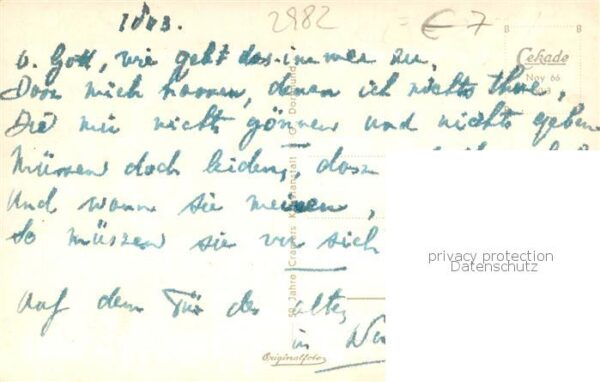 1803.
2982
= € 7
o. Gott, wie geht das immer zu,
Dass mich hassen, denen ich nichts thue,
Die mir nichts gönnen und nichts geben
Müssen doch leiden, dass
Und wann sie meinen,
So müssen sie sich
Auf dem Tür des alten
in
Cekade
Nov 66
50 Jahre Cramers Kunstanstalt KG Dortmund
Originalfoto
privacy protection
Datenschutz